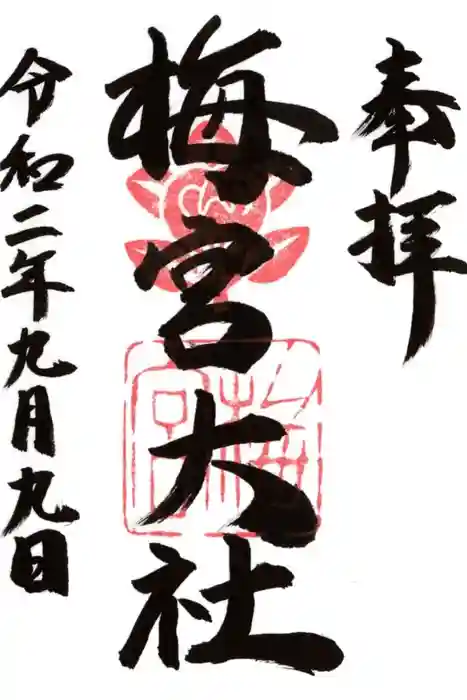 奉拝
梅宮大社
梅宮
令和二年九月九日